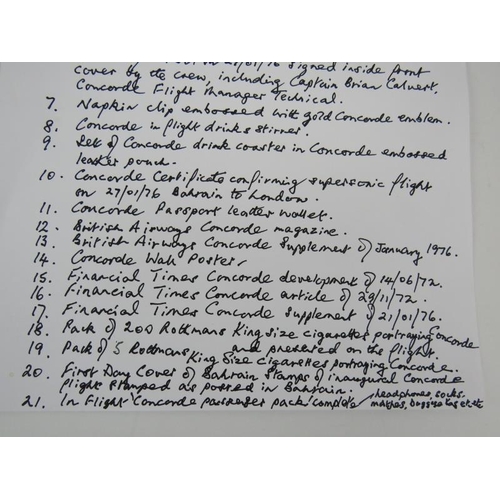 on 28/01/76 signed inside front
cover by the crew, including Captain Brian Calvert,
Concorde Flight Manager Technical.
7. Napkin clip embossed with gold Concorde emblem.
8. Concorde in flight drinks stirrer.
9. Set of Concorde drink coaster in Concorde embossed
leather pouch.
10. Concorde Certificate confirming supersonic flight
on 27/01/76 Bahrain to London.
11. Concorde Passport leather wallet.
12. British Airways Concorde magazine.
13. British Airways Concorde Supplement of January 1976.
14. Concorde Wall Poster.
15. Financial Times Concorde development of 14/06/72.
16. Financial Times Concorde article of 29/11/72.
17. Financial Times Concorde supplement of 21/01/76.
18. Pack of 200 Rothmans King Size Cigarettes portraying Concorde
and presented on the flight.
19. Pack of 5 Rothmans King Size Cigarettes portraying Concorde.
20. First Day Cover of Bahrain Stamps of inaugural Concorde
flight stamped as posted in Bahrain.
21. In Flight 'Concorde passenger pack' complete / headphones, socks,
matches, baggage tag etc etc